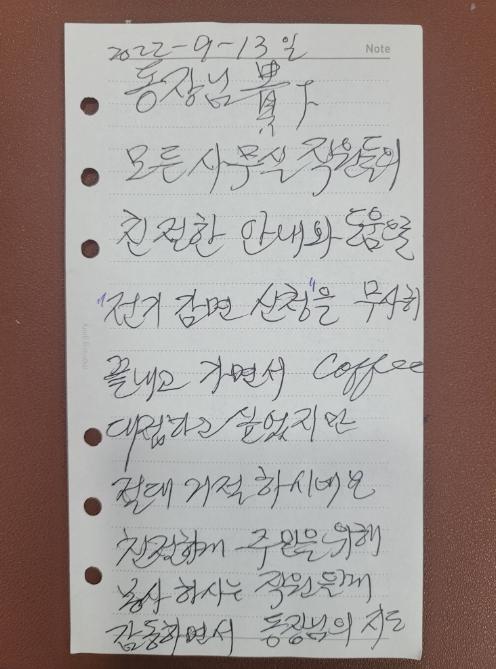 2022-9-13일
Note
동장님 貴下
모든 사무실 직원들의
친절한 안내와 도움으로
"전기 감면 신청"을 무사히
끝내고 가면서 Coffee
대접하고 싶었지만
절대 거절하시네요
친절하게 주민을 위해
봉사하시는 직원들께
감동하면서 동장님의 지도